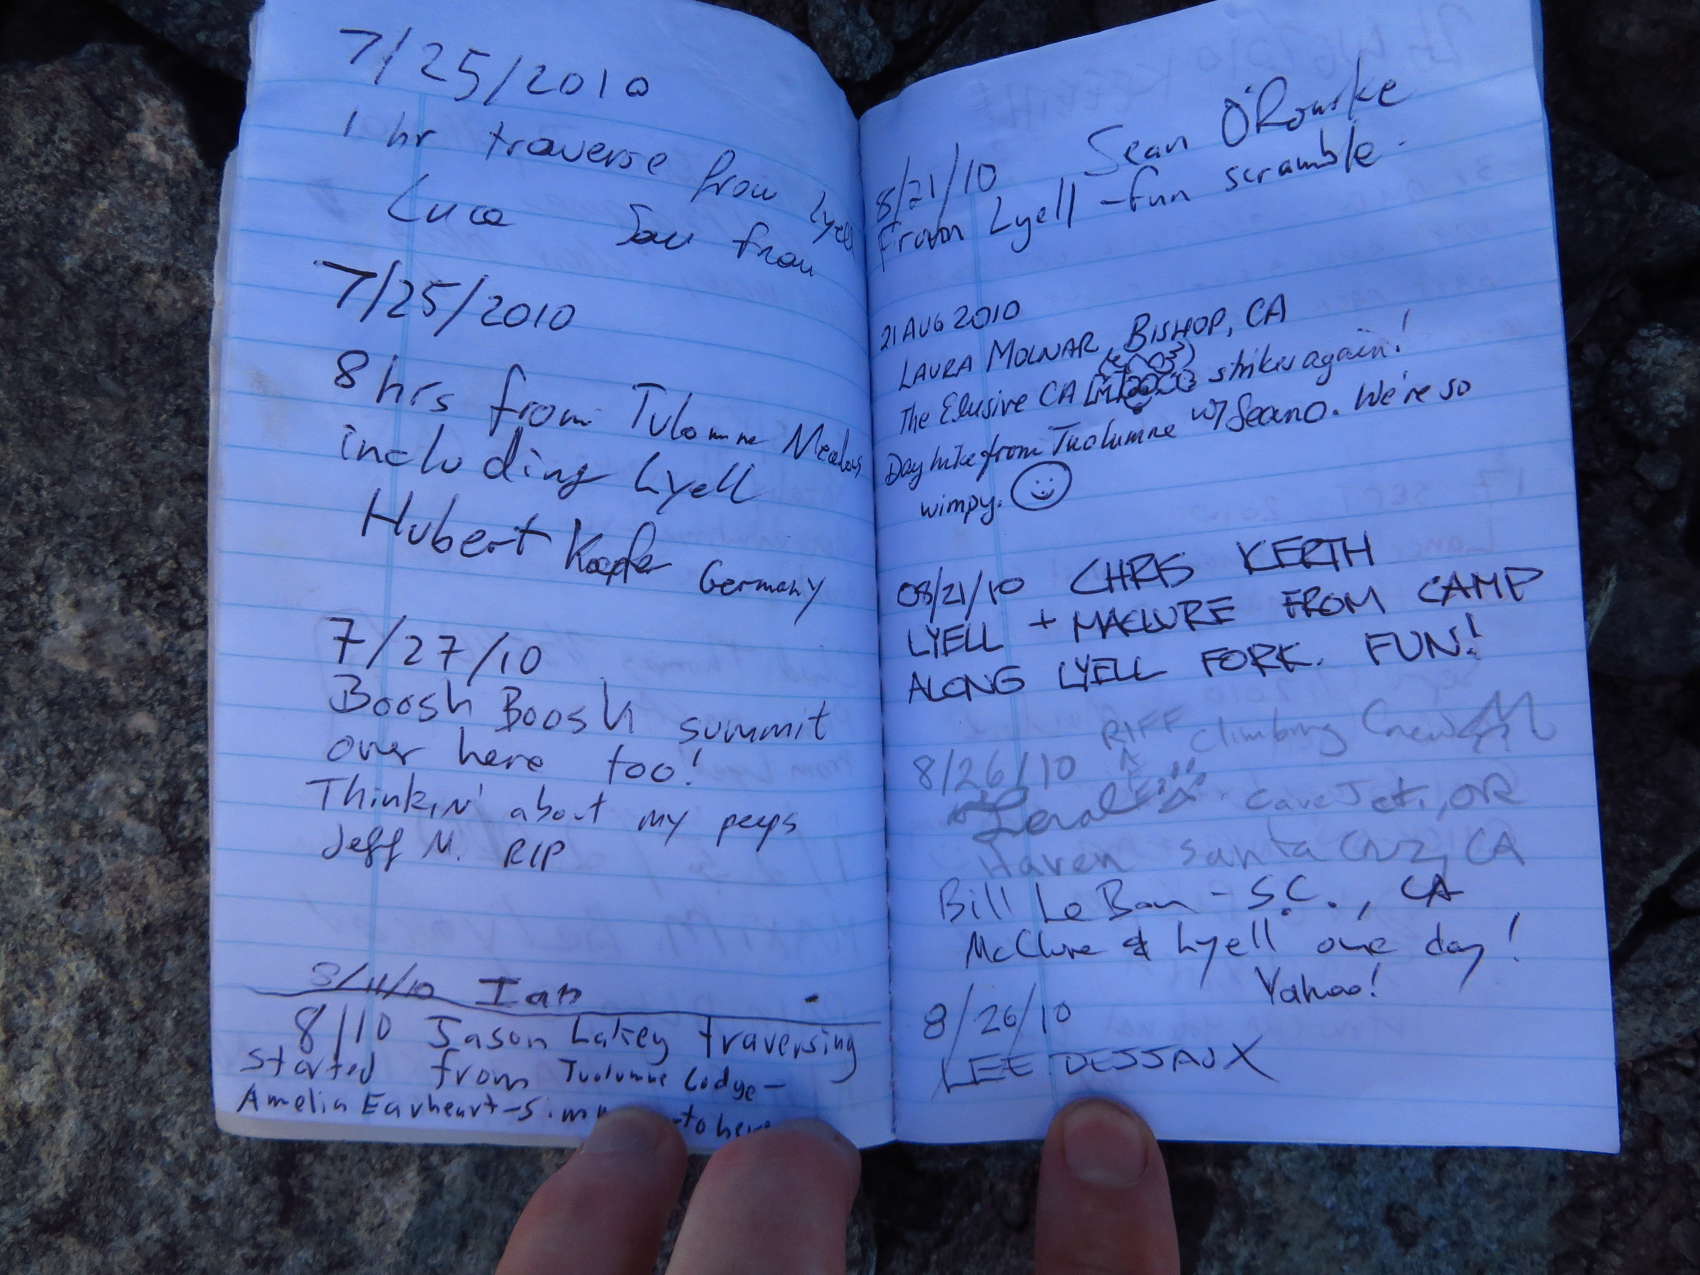 7/25/2010
1 hr traverse from Lyell
Luca San Fran
7/25/2010
8 hrs from Tulomne Meadows
including Lyell
Hubert Germany
7/27/10
Boosh Boosh summit
over here too!
Thinkin' about my peeps
Jeff M. RIP
8/11/10 Ian
8/10 Jason Lakey traversing
started from Tuolumne Lodge-
Amelia Earheart-Simm -to here
8/21/10 Sean O'Rourke
From Lyell - fun scramble.
21 AUG 2010
LAURA MOLNAR, BISHOP, CA
The Elusive CA strikes again!
Day hike from Tuolumne w/ Seano. We're so
wimpy.
08/21/10 CHRIS KERTH
LYELL + MACLURE FROM CAMP
ALONG LYELL FORK. FUN!
8/26/10 RIFF Climbing Crew
Cave Jct., OR
Haven Santa Cruz, CA
Bill Le Ban - S.C., CA
McClure & Lyell one day!
Yahoo!
8/26/10
LEE DESSAUX